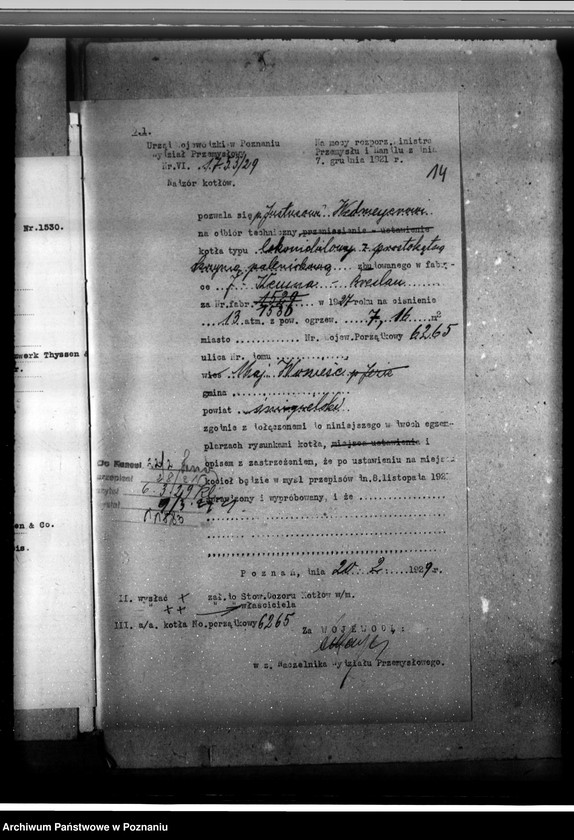 Nr.1530.
werk Thyssen &
r.
en & Co.
is.
Urząd Wojewódzki w Poznaniu
Wydział Przemysłowy
Nr.VI. 1733/29
Nadzór kotłów.
Na mocy rozporz. Ministra
Przemysłu i Handlu z dnia
7. grudnia 1921 r.
14
pozwala się p. Justusowi Wedmeyerowi
na odbiór techniczny, przeniesienie - ustawienie
kotła typu lokomobilowy z prostokątną
skrzynią paleniskową .... zbudowanego w fabry-
ce f. Kemna - Breslau
za Nr.fabr. 1530 w 1927 roku na ciśnienie
... 13 atm. z pow. ogrzew. .... 7,16 ... m2
miasto ............. Nr. Wojew.Porządkowy 6265
ulica Nr. domu ..............
wieś Maj.
gmina ....................
powiat . śmigielski
zgodnie z dołączonemi do niniejszego w dwóch egzem-
plarzach rysunkami kotła, miejsca ustawienia i
opisem z zastrzeżeniem, że po ustawieniu na miejscu
kocioł będzie w myśl przepisów dn.8.listopada 192
sprawdzony i wypróbowany, i że ...............
Do Kancel.
11883
Poznań, dnia 20. 2. 1929 r.
II. wysłać + zał. do Stow.Dozoru Kotłów w/m.
" ++ " " właściciela
III. a/a. kotła No.porządkowy 6265
Za WOJEWODĘ:
w z. Naczelnika Wydziału Przemysłowego.
Archiwum Państwowe w Poznaniu